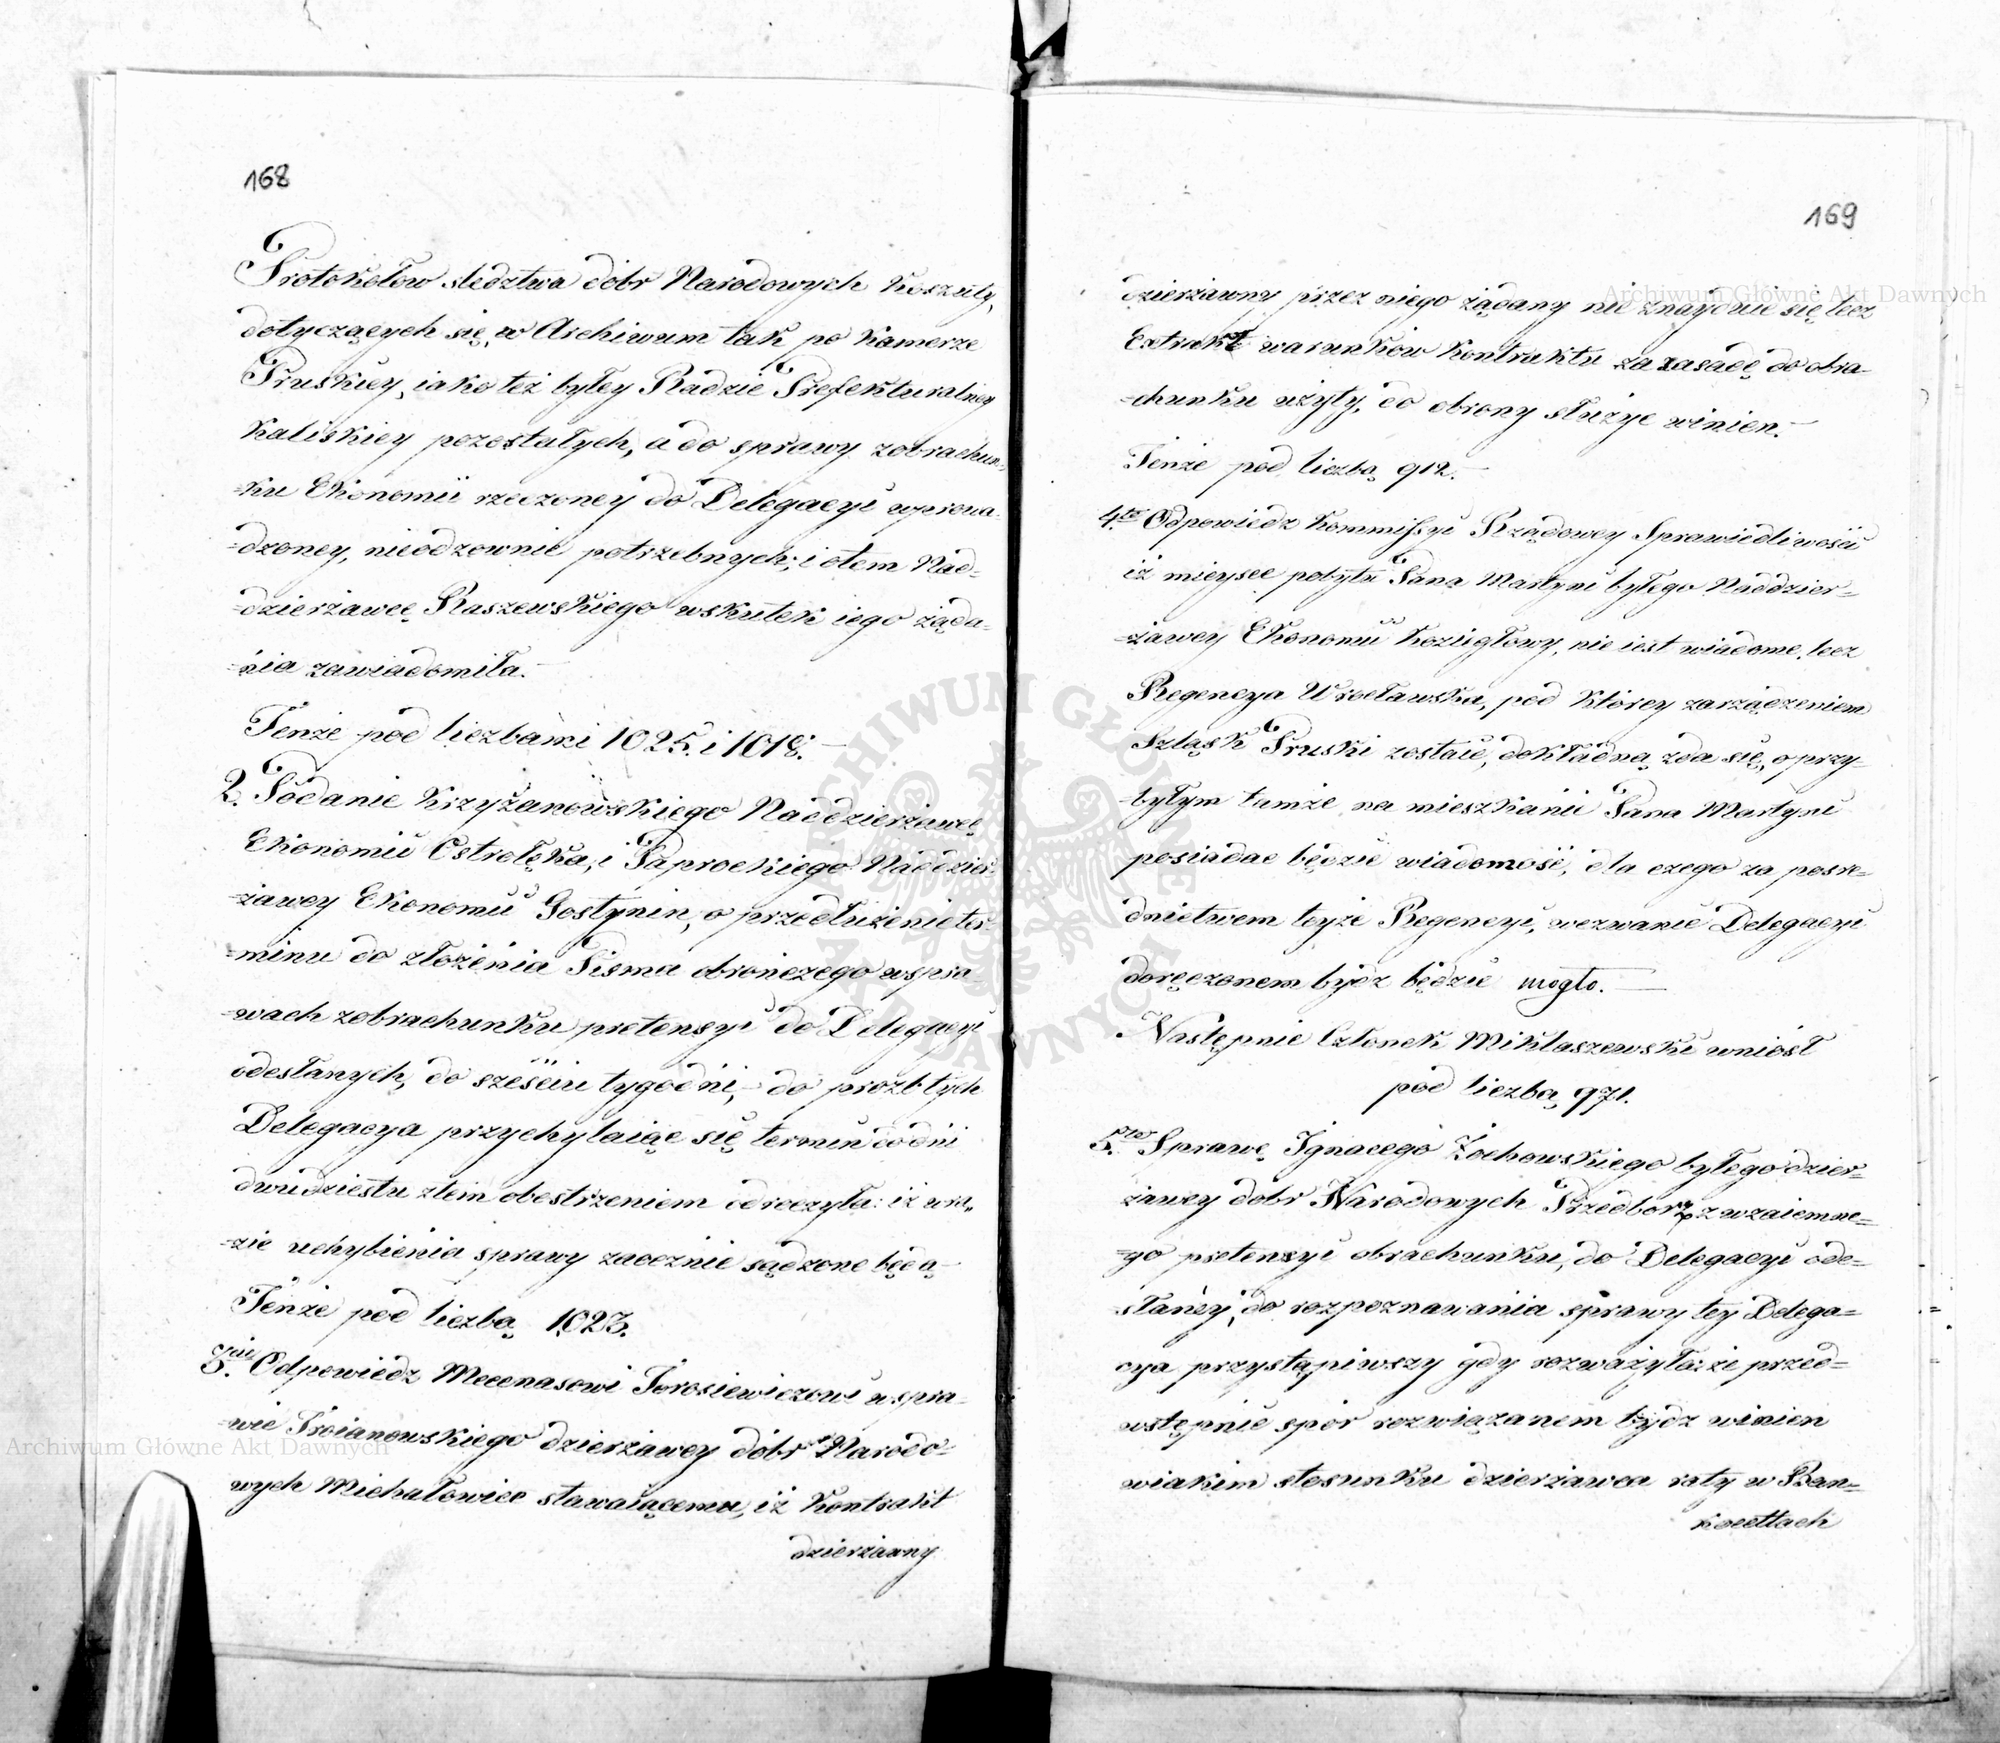 168
Protokołów sledztwa dóbr Narodowych Koszuty,
dotyczących się, w Archiwum tak po Kamerze
Pruskiey, iako też byłey Radzie Prefekturalney
Kaliskiey pozostałych, a do sprawy zobrachun-
=ku Ekonomii rzeczoney do Delegacyi wprowa-
=dzoney, nieodzownie potrzebnych; i otem Nad-
=dzierżawcę Raszewskiego wskutek iego żąda-
=nia zawiadomiła.—
Tenże pod liczbami 1025. i 1018.—
2. Podanie Krzyżanowskiego Naddzierżawcę
Ekonomii Ostrołęka, i Paprockiego Naddzier-
=żawcy Ekonomii Gostynin, o przedłużenie ter-
=minu do złożenia Pisma obrończego wspra-
=wach zobrachunku pretensyi do Delegacyi
odesłanych, do sześciu tygodni,— do prozb tych
Delegacya przychylaiąc się termin do dni
dwudziestu ztem obestrzeniem odroczyła: iż wra„
=zie uchybienia sprawy zaocznie sądzone będą—
Tenże pod liczbą 1023.
3.cie Odpowiedz Mecenasowi Torosiewiczowi wspra-
=wie Troianowskiego dzierżawcy dóbr Narodo-
wych Michałowiec stawaiącemu, iż Kontrakt
dzierżawny
169
dzierżawny przez niego żądany nie znayduie się lecz
Extrakt warunków Kontraktu za zasadę do obra-
=chunku użyty, do obrony służyc winien.—
Tenże pod liczbą 912.—
4.te Odpowiedz Kommissyi Rządowey Sprawiedliwości
iż mieysce pobytu Pana Martyni byłego Naddzier-
=żawcy Ekonomii Koziegłowy, nie iest wiadome, lecz
Regencya Wrocławska, pod Którey zarządzeniem
Szląsk Pruski zostaie, dokładną zda się, o przy-
=byłym tamże na mieszkanie Pana Martyni
posiadac będzie wiadomość, dla czego za posre-
dnictwem teyże Regencyi, wezwanie Delegacyi
doręczonem bydz będzie mogło.—
Następnie Członek Miklaszewski wniósł
pod liczbą 971.
5.te Sprawę Ignacego Żochowskiego byłego dzier-
żawcy dóbr Narodowych Przedborz, z wzaiemne-
=go pretensyi obrachunku, do Delegacyi ode-
słaney, do rozpoznawania sprawy tey Delega=
cya przystąpiwszy gdy rozważyła: że przed=
wstępnie spór rozwiązanem bydz winien
wiakim stosunku dzierżawca raty w Ban=
kocetlach
Archiwum Główne Akt Dawnych
Archiwum Główne Akt Dawnych
ARCHIWUM GŁÓWNE AKT DAWNYCH